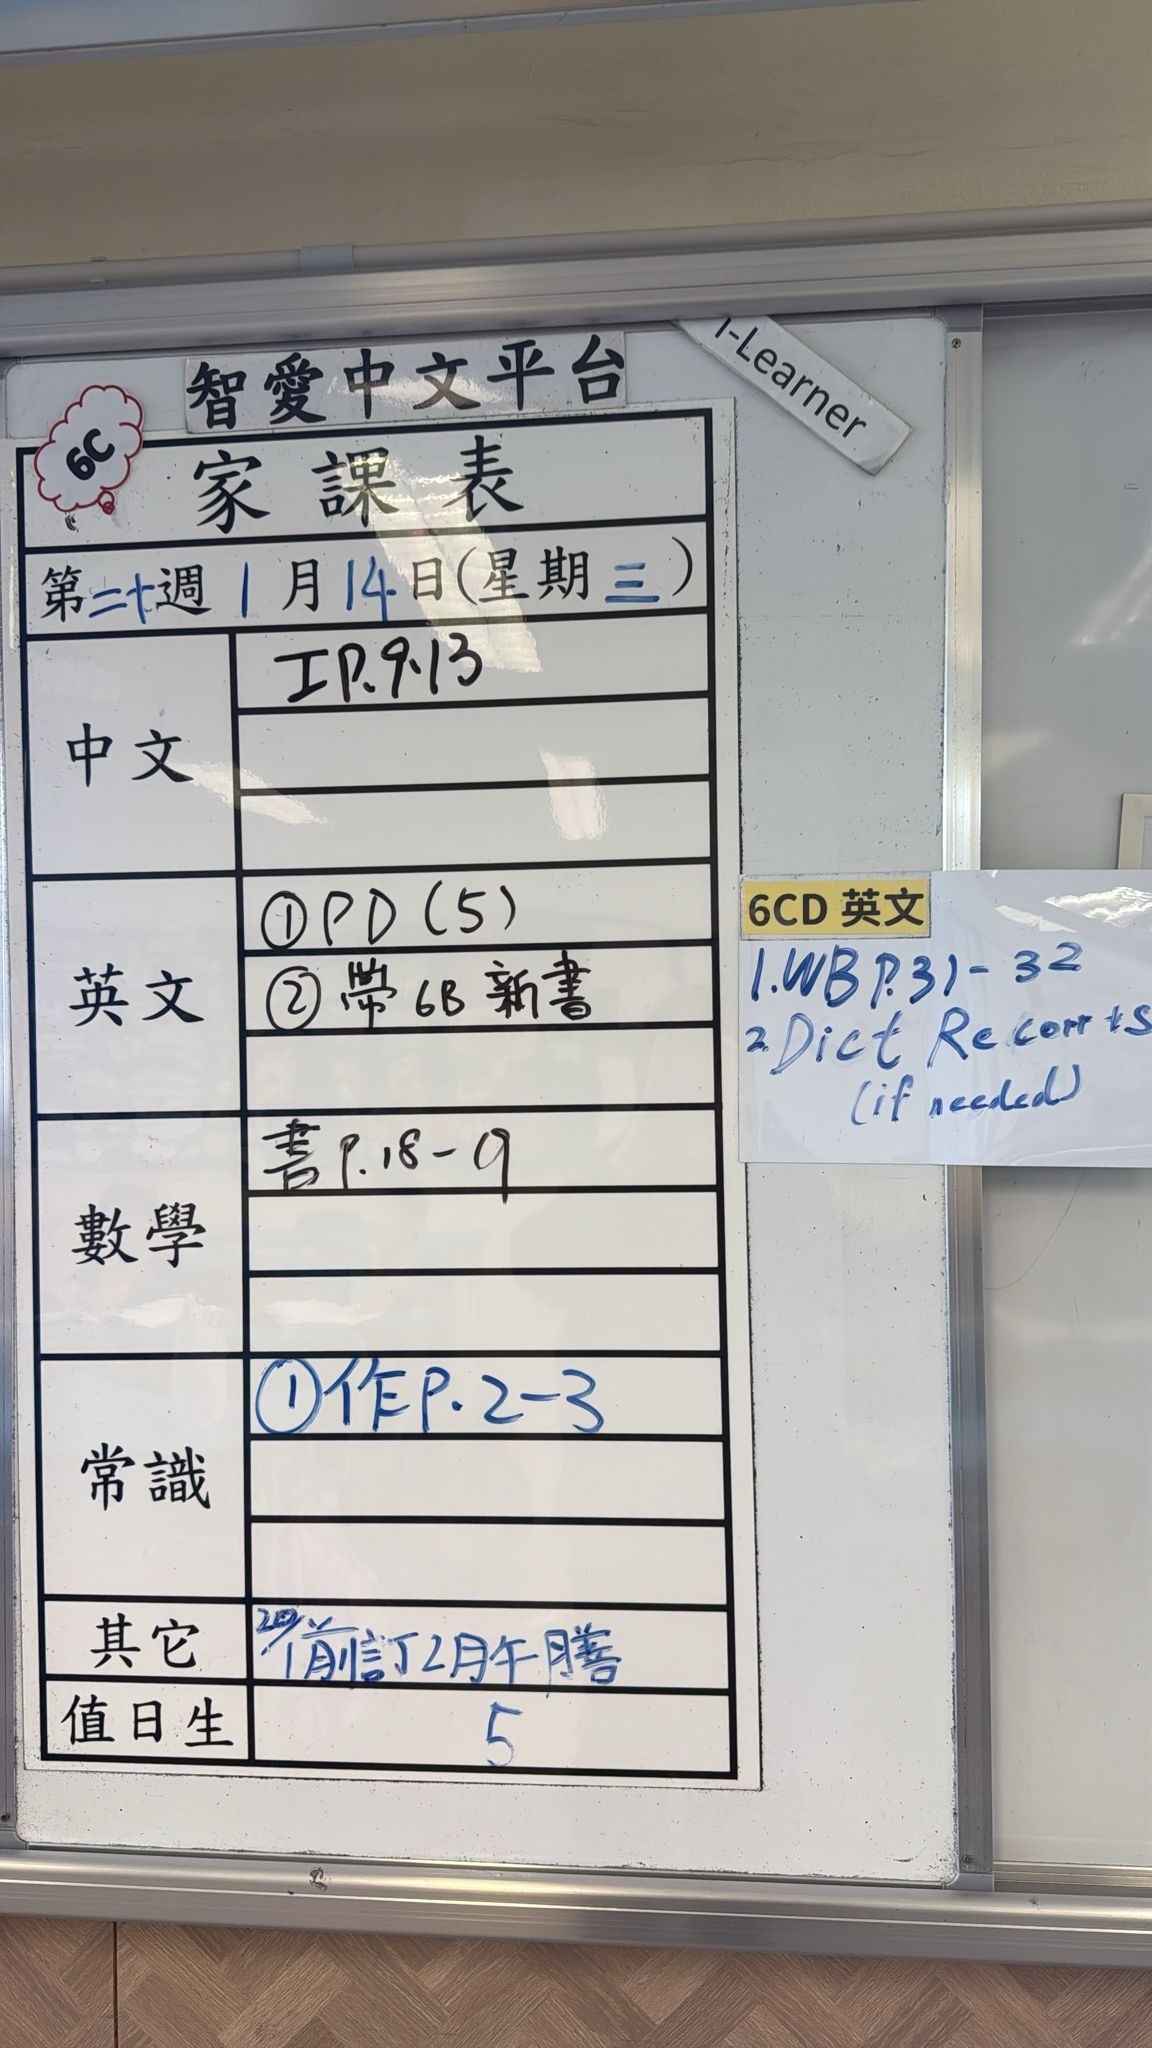 智愛中文平台
I-Learner
6C
家課表
第二十週 1月14日(星期三)
中文
工P.9.13
英文
①PD(5)
②帶6B新書
6CD 英文
1.WB P.31-32
2.Dict Re corr + S
(if needed)
數學
書P.18-9
常識
①作P.2-3
其它
前訂2月午膳
值日生
5